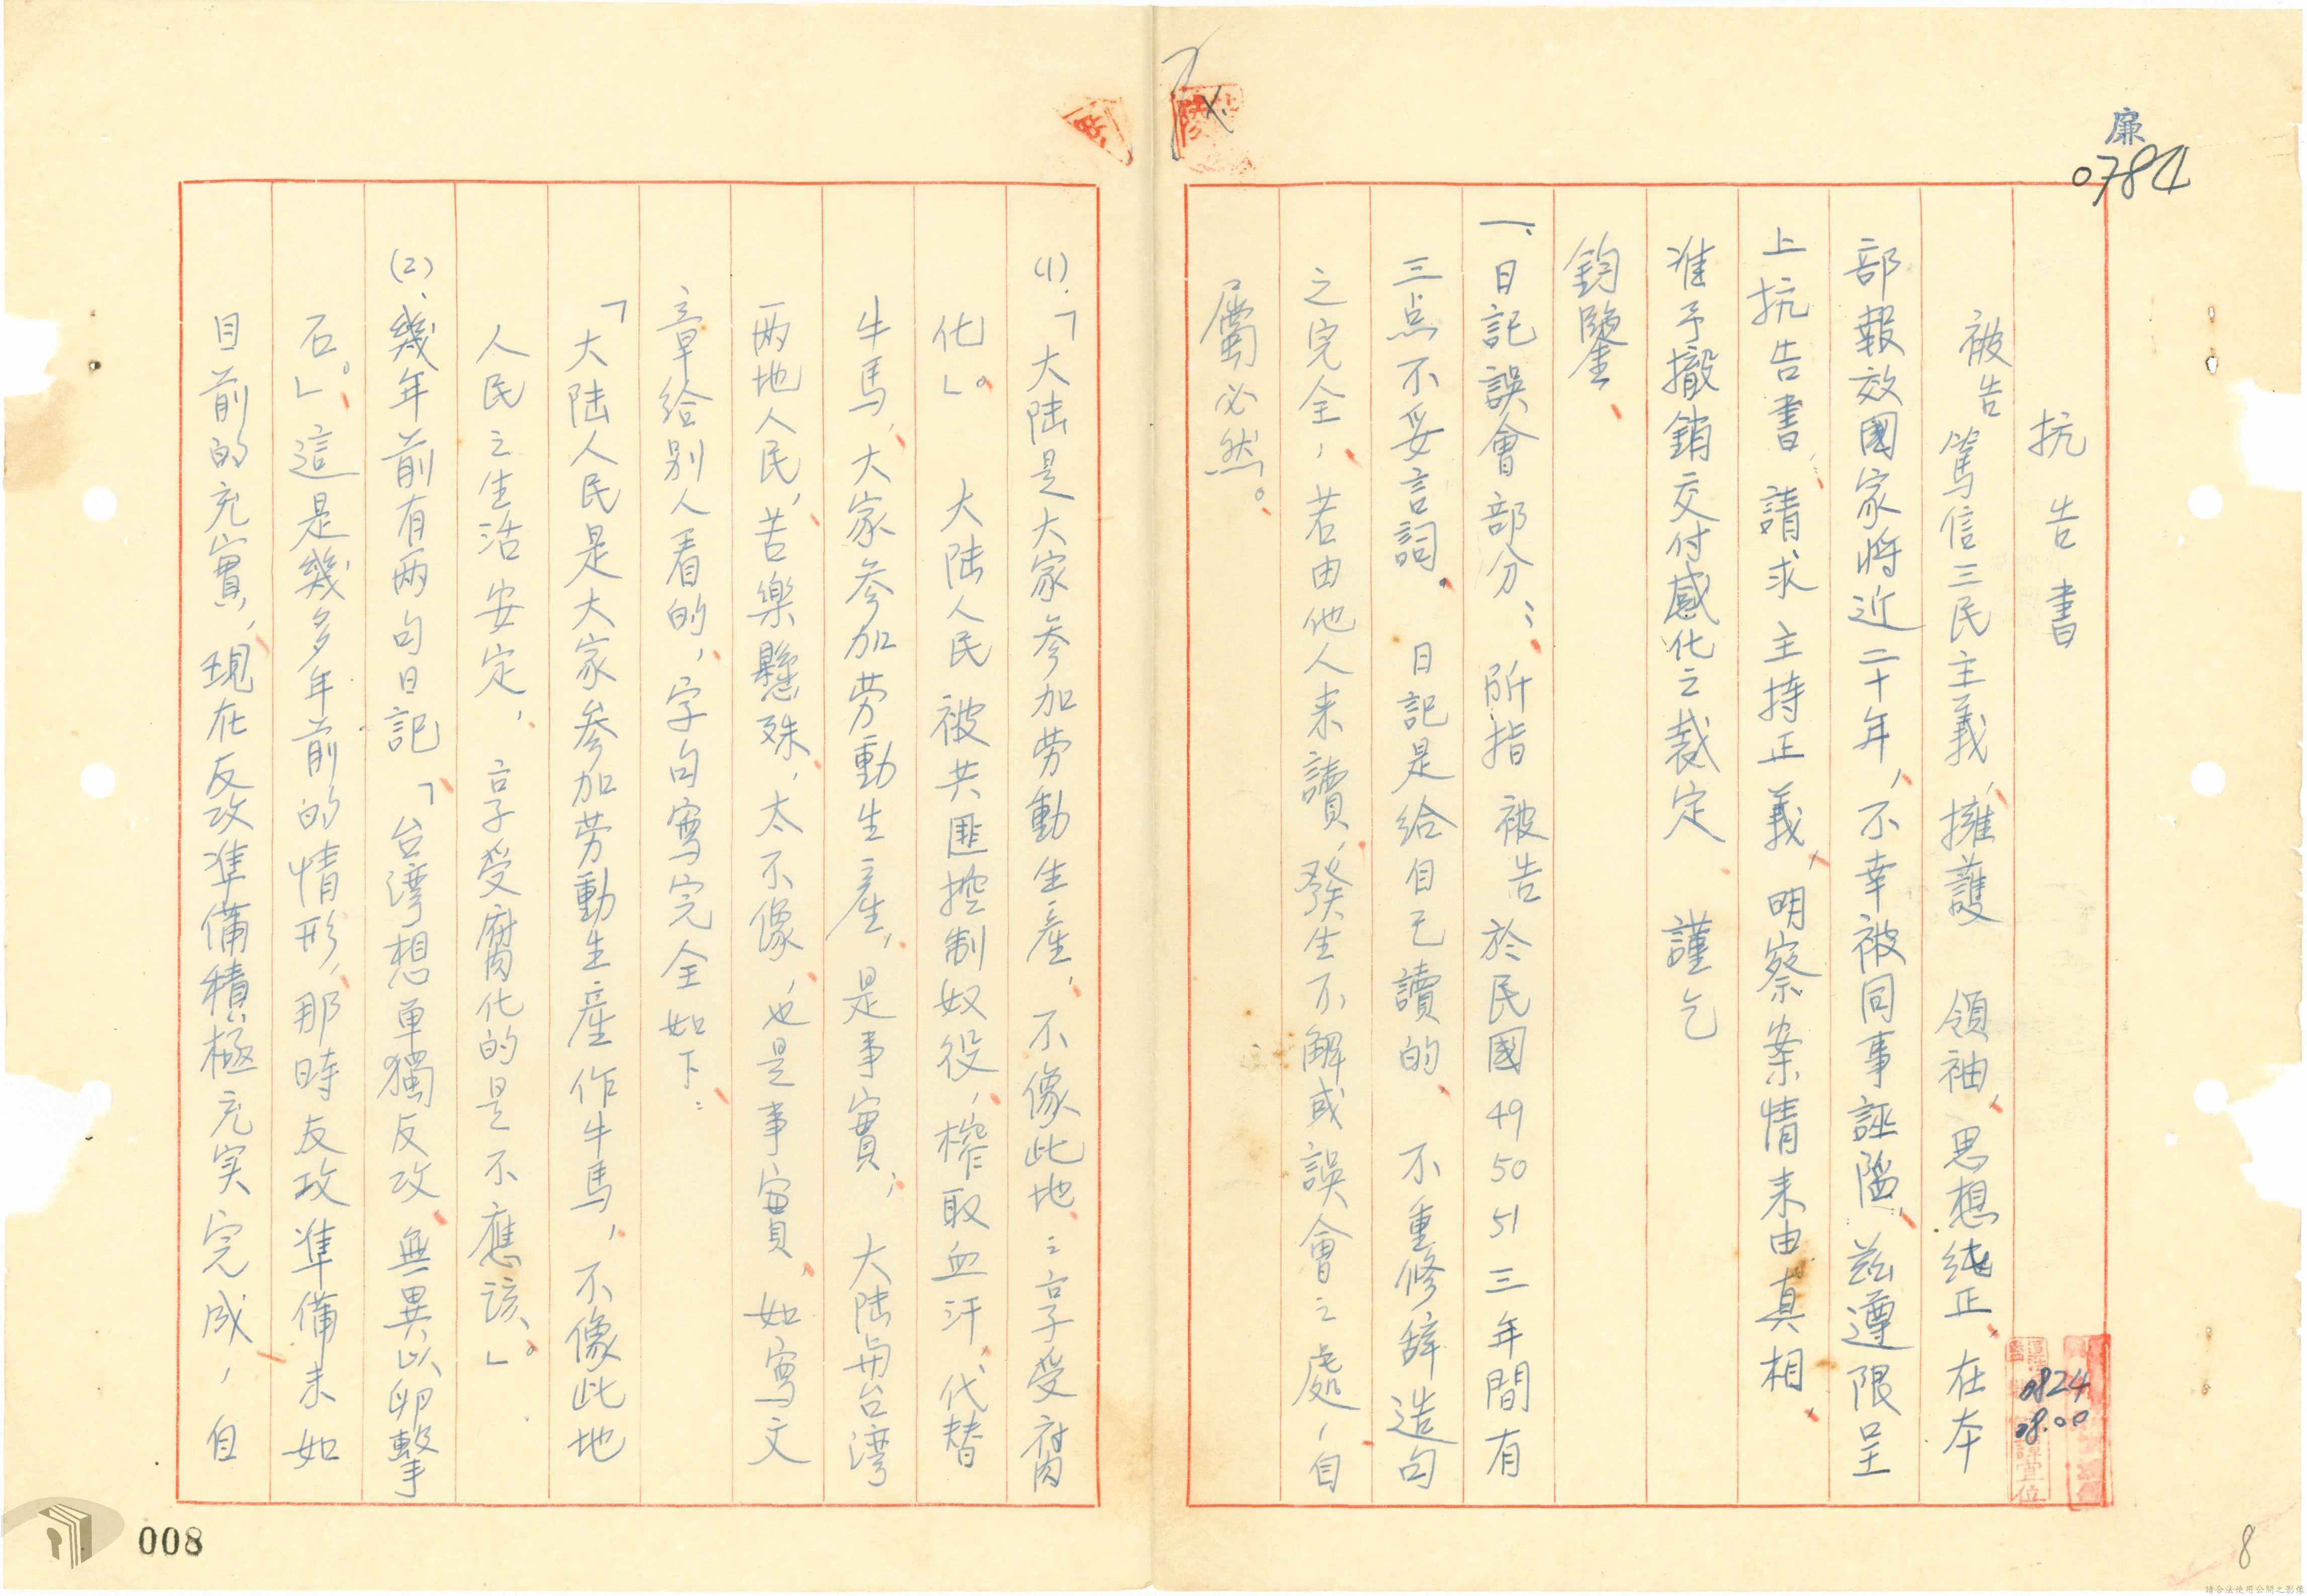 廉
0784
抗告書
被告篤信三民主義、擁護 領袖、思想純正、在本
部報效國家將近二十年、不幸被同事誣陷、茲遵限呈
上抗告書、請求 主持正義、明察案情来由真相、
准予撤銷交付感化之裁定 謹乞
鈞鑒、
一、日記誤會部分：所指 被告於民國49 50 51三年間有
三点不妥言詞。 日記是給自己讀的、不重修辞造句
之完全，若由他人来讀、發生不解或誤會之處，自
屬必然。
(1).「大陆是大家参加劳動生産，不像此地之享受腐
化」。 大陆人民被共匪控制奴役，榨取血汗，代替
牛馬，大家参加劳動生産，是事實； 大陆與台湾
两地人民，苦樂懸殊，太不像，也是事實， 如寫文
章給别人看的，字句寫完全如下：
「大陆人民是大家参加劳動生産作牛馬，不像此地
人民之生活安定， 享受腐化的是不應該。」
(2)、幾年前有两句日記「台湾想单獨反攻、無異以卵擊
石。」這是幾多年前的情形，那時反攻準備未如
目前的充實，現在反攻準備積極充实完成，自
0824
08.00
008
8
請合法使用公開之影像